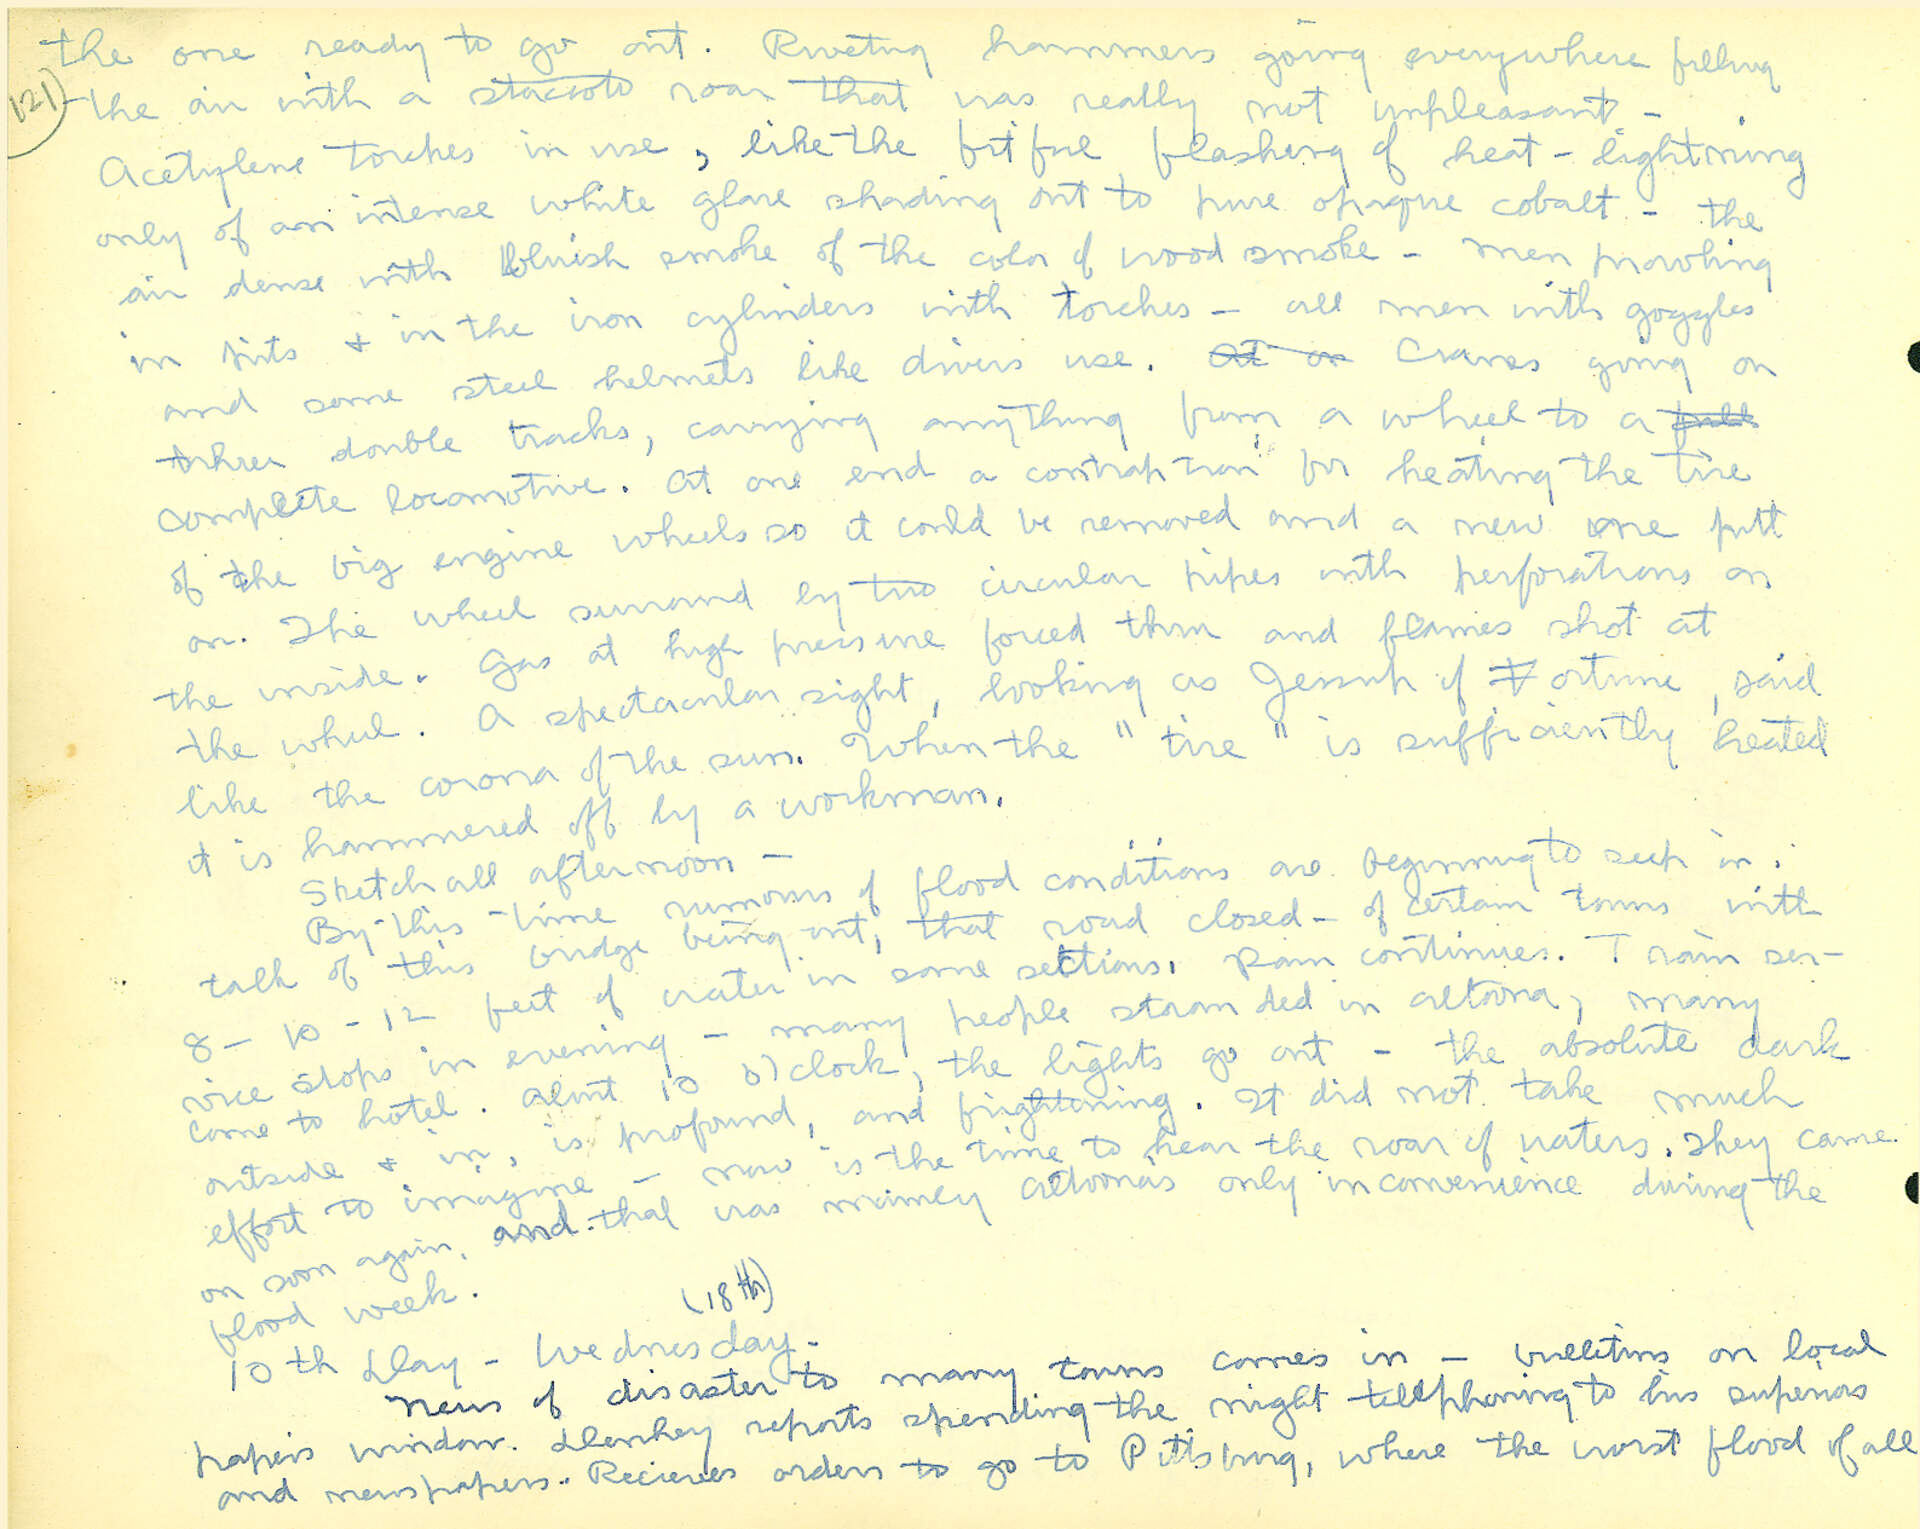 the one ready to go out. Riveting hammers going everywhere filling
121
the air with a staccato roar that was really not unpleasant -
Acetylene torches in use, like the fitful flashing of heat-lightning
only of an intense white glare shading out to pure opaque cobalt - the
air dense with bluish smoke of the color of wood smoke - men prowling
in pits & in the iron cylinders with torches - all men with goggles
and some steel helmets like divers use. At on Cranes going on
three double tracks, carrying anything from a wheel to a full
complete locomotive. At one end a contraption for heating the tire
of the big engine wheels so it could be removed and a new one putt
on. The wheel surround by two circular pipes with perforations on
the inside. Gas at high pressure forced thru and flames shot at
the wheel. A spectacular sight, looking as Jessup of Fortune, said
like the corona of the sun. When the "tire" is sufficiently heated
it is hammered off by a workman.
Sketch all afternoon -
By this time rumours of flood conditions are beginning to seep in.
talk of this bridge being out, that road closed - of certain towns with
8 - 10 - 12 feet of water in some sections. Rain continues. Train ser-
vice stops in evening - many people stranded in Altoona, many
come to hotel. About 10 o'clock, the lights go out - the absolute dark
outside & in, is profound, and frightening. It did not take much
effort to imagine - now is the time to hear the roar of waters. They came
on soon again, and that was mainly Altoona's only inconvenience during the
flood week.
(18th)
10th Day - Wednesday -
News of disaster to many towns comes in - bulletins on local
papers window. Denkey reports spending the night telephoning to his superiors
and newspapers. Recieves orders to go to Pittsburg, where the worst flood of all